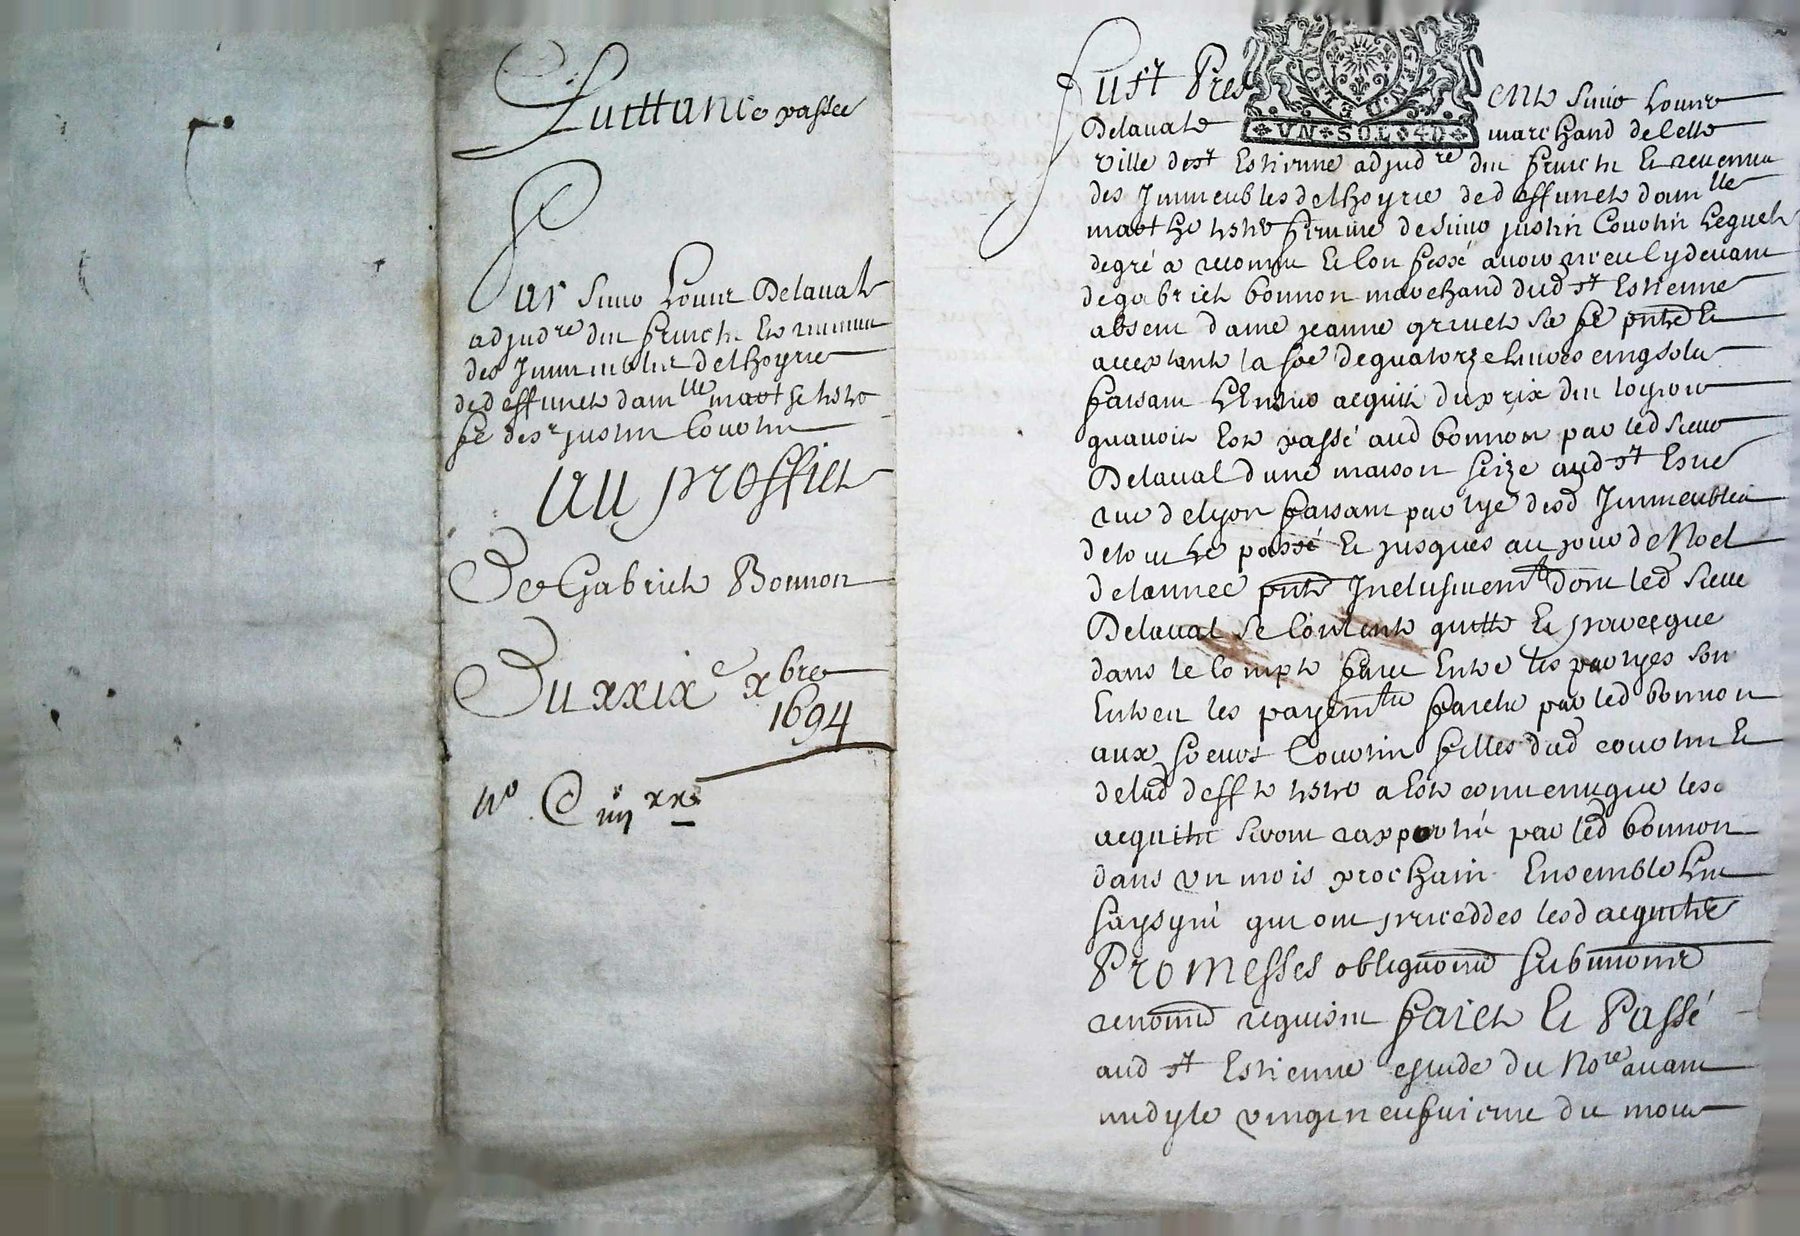 Quittance passée
Par sieur Louis Delaval
adjudre du fruict et revenu
des Immeubles delhoyrie
de deffuncte damlle marthe
fe de sr justin Couotin
Au proffict
De Gabriel Bonnon
Du xxixe xbre
1694
No C iiij xx
Fust Present sieur Louis
UN SOL 4D
Delaval marchand de cette
ville de st Estienne adjudre du fruict et revenu
des Immeubles delhoyrie de deffuncte damlle
marthe femme de sieur justin Couotin Lequel
de gré a reconnu et confessé avoir receu cy devant
de gabriel bonnon marchand dud st Estienne
absent dame jeanne grivet sa fe pnte et
acceptante la soe de quatorze livres cinq solz
faisant Entier acquit du prix du loyer
quavoit Esté passé aud bonnon par led sieur
Delaval dune maison scize aud st Esne
rue de lyon faisant partye desd Immeubles
de tout le passé et jusques au jour de Noel
de lannee pnte Inclusivemt dont led sieur
Delaval se contente quitte et
dans le compte faict Entre les partyes son
Entres les payemts faicts par led bonnon
aux soeurs Couotin filles dud couotin et
de lad deffte a Esté convenu que les
acquits seront rapportés par led bonnon
dans un mois prochain Ensemble les
saysyes qui ont preceddes lesd acquits
Promesses obligaons submissions
renonons requisn Faict et Passé
aud st Estienne estude du Nore avant
midy le vingt neufviesme du mois